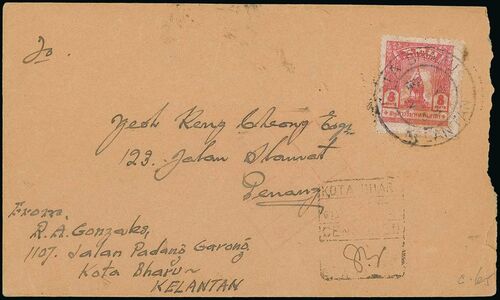 To
Yeoh Keng Cheong Esq.
123. Jalan
Penang
From:
R. A. Gonzales,
1107. Jalan Padang Garong
Kota Bharu ~
KELANTAN
8 8
KELANTAN
KOTA BHAR